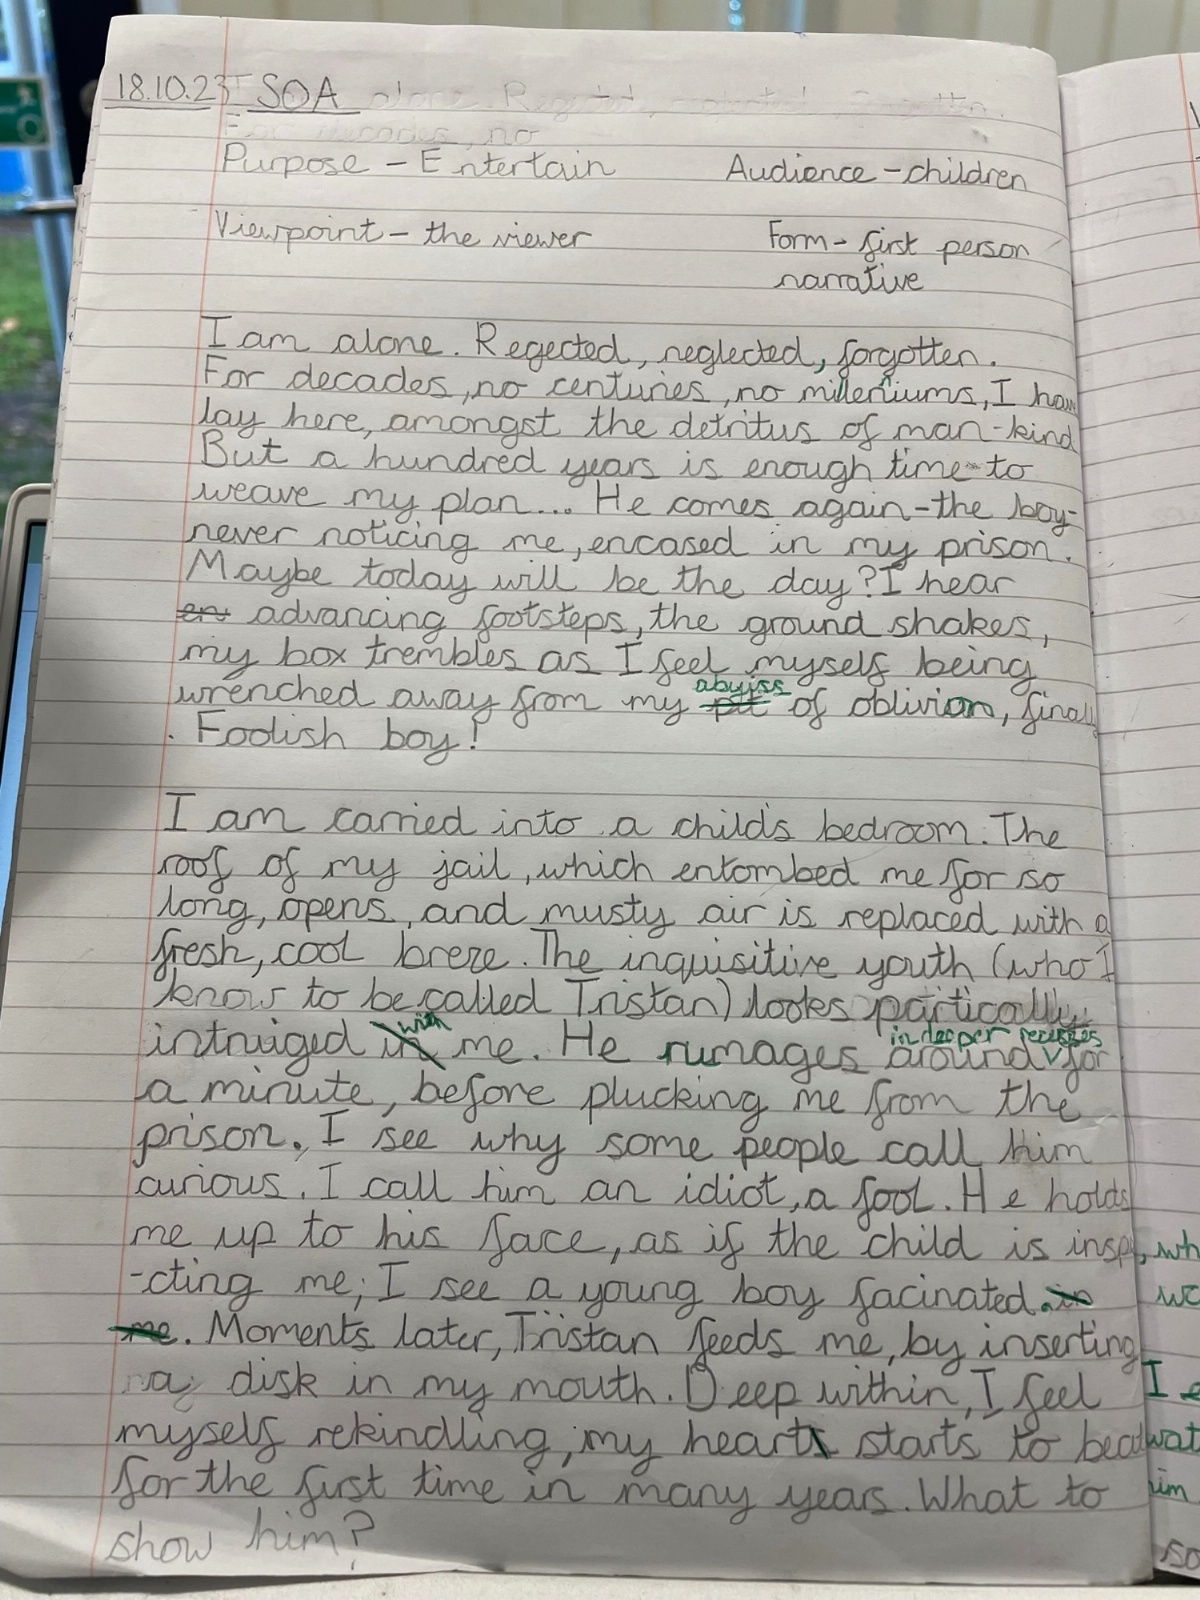 18.10.23 SOA
Purpose - Entertain Audience - children
Viewpoint - the viewer Form - first person
narrative
I am alone. Regected, neglected, forgotten.
For decades, no centuries, no milleniums, I hav
lay here, amongst the detritus of man-kind
But a hundred years is enough time to
weave my plan... He comes again - the boy -
never noticing me, encased in my prison.
Maybe today will be the day? I hear
en advancing footsteps, the ground shakes,
my box trembles as I feel myself being
abyiss
wrenched away from my pit of oblivion, finally
. Foolish boy!
I am carried into a child's bedroom. The
roof of my jail, which entombed me for so
long, opens, and musty air is replaced with a
fresh, cool breze. The inquisitive youth (who I
know to be called Tristan) looks partically
with
intruiged in me. He rumages around for
in deeper recesses
a minute, before plucking me from the
prison. I see why some people call him
curious. I call him an idiot, a fool. He holds
me up to his face, as if the child is insp
-cting me; I see a young boy facinated. in
me. Moments later, Tristan feeds me, by inserting
a disk in my mouth. Deep within, I feel
myself rekindling, my heart starts to beat
for the first time in many years. What to
show him?